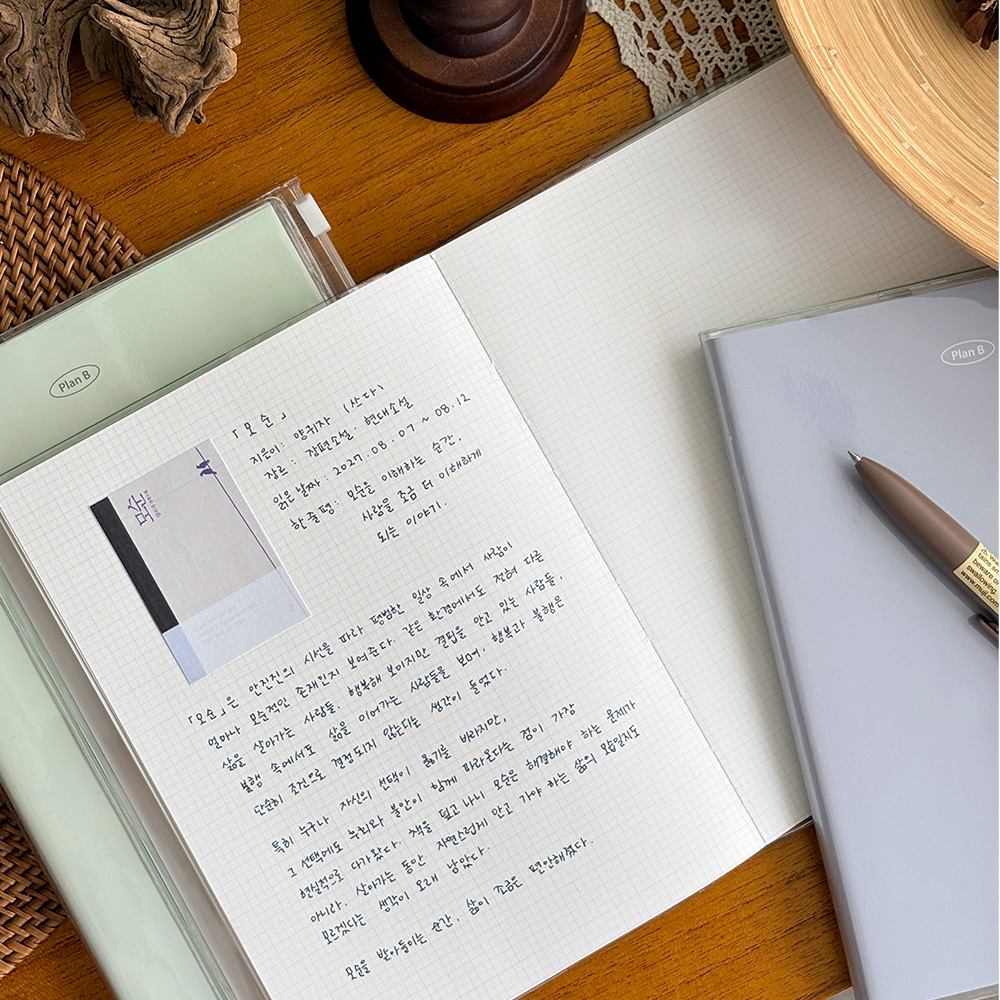 Plan B
「모순」
지은이: 양귀자 (쓰다)
장르: 장편소설·현대소설
읽은 날짜: 2027.08.07 ~ 08.12
한 줄 평: 모순을 이해하는 순간,
사람을 조금 더 이해하게
되는 이야기.
「모순」은 안진진의 시선을 따라 평범한 일상 속에서 사람이
얼마나 모순적인 존재인지 보여준다. 같은 환경에서도 전혀 다른
삶을 살아가는 사람들, 행복해 보이지만 결핍을 안고 있는 사람들,
불행 속에서도 삶을 이어가는 사람들을 보며, 행복과 불행은
단순히 조건으로 결정되지 않는다는 생각이 들었다.
특히 누구나 자신의 선택이 옳기를 바라지만,
그 선택에도 후회와 불안이 함께 따라온다는 점이 가장
현실적으로 다가왔다. 책을 덮고 나니 모순은 해결해야 하는 문제가
아니라, 살아가는 동안 자연스럽게 안고 가야 하는 삶의 모습일지도
모르겠다는 생각이 오래 남았다.
모순을 받아들이는 순간, 삶이 조금은 편안해졌다.
Plan B
beware of
swallowing.
www.muji.com